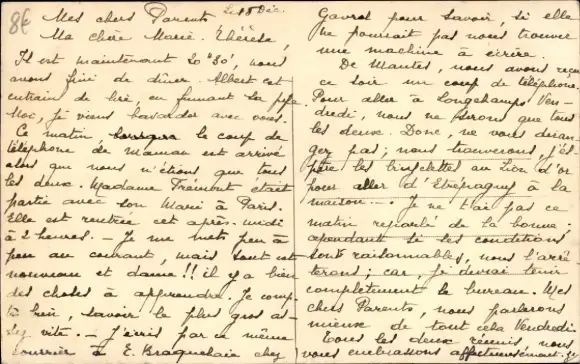 8€
Mes chers Parents Le 18 Déc.
Ma chère Marie. Thérèse,
Il est maintenant 20 h 30', nous
avons fini de dîner. Albert est
entrain de lire, en fumant sa pipe
Moi, je viens bavarder avec vous.
Ce matin le coup de
téléphone de maman est arrivé
alors que nous n'étions que tous
les deux. Madame Trémont était
partie avec son Mari à Paris.
Elle est rentrée cet après-midi
à 2 heures. — Je me mets peu à
peu au courant, mais tout est
nouveau et dame!! il y a bien
des choses à apprendre. Je comp-
te bien, savoir le plus gros as-
sez vite. — J'écris par ce même
courrier à E. Braquelaire chez
Gavrol pour savoir, si elle
ne pourrait pas nous trouver
une machine à écrire.
De Mantes, nous avons reçu
ce soir un coup de téléphone.
Pour aller à Longchamps Ven-
dredi, nous ne serons que tous
les deux. Donc, ne vous déran-
gez pas; nous trouverons, j'es-
père les bicyclettes au Lion d'or
pour aller d'Etrépagny à la
maison... Je ne t'ai pas ce
matin reparlé de la bonne;
cependant si les conditions
sont raisonnables, nous l'arrê-
terons; car, je devrai tenir
complètement le bureau. Mes
chers Parents, nous parlerons
mieux de tout cela Vendredi
Tous les deux réunis, nous
vous embrassons affectueusement.